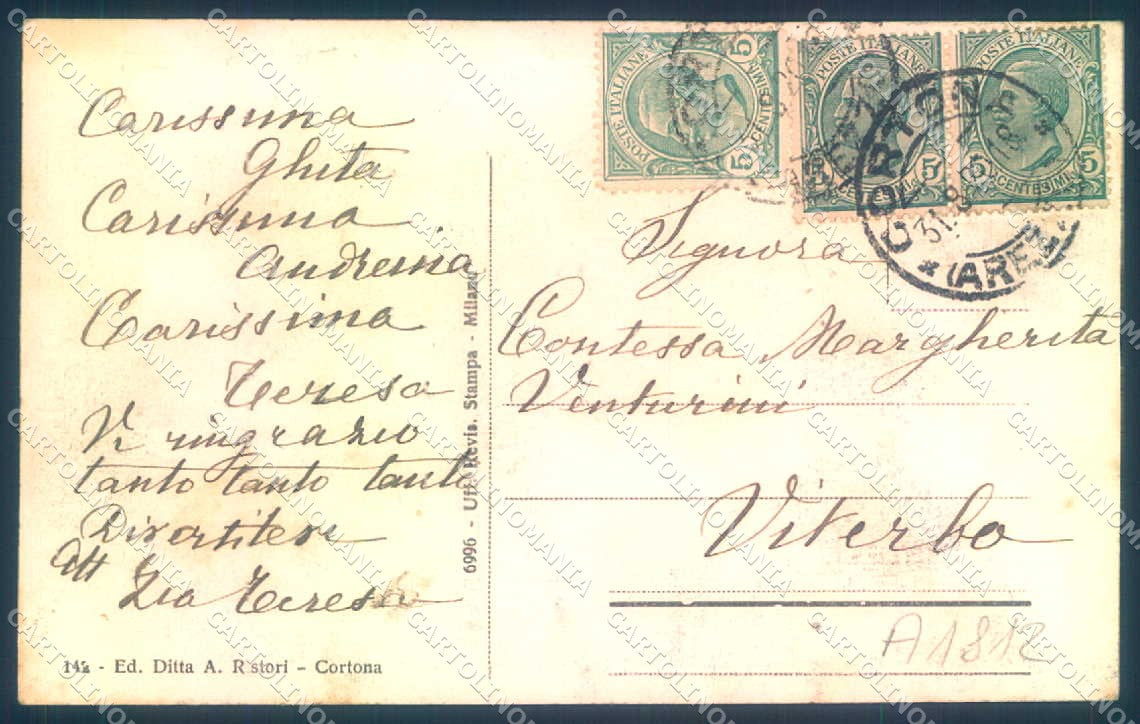 Carissima
Ghita
Carissima
Andreina
Carissima
Teresa
Vi ringrazio
tanto tanto tanto
Divertitevi
Aff
Zia Teresa
142 - Ed. Ditta A. Ristori - Cortona
6996 - Uff. Revis. Stampa - Milano
POSTE ITALIANE
5 CENTESIMI 5
POSTE ITALIANE
5 CENTESIMI 5
POSTE ITALIANE
5 CENTESIMI 5
CORTONA
31.8
(AREZZO)
Signora
Contessa Margherita
Venturini
Viterbo
A1812
CARTOLINOMANIA